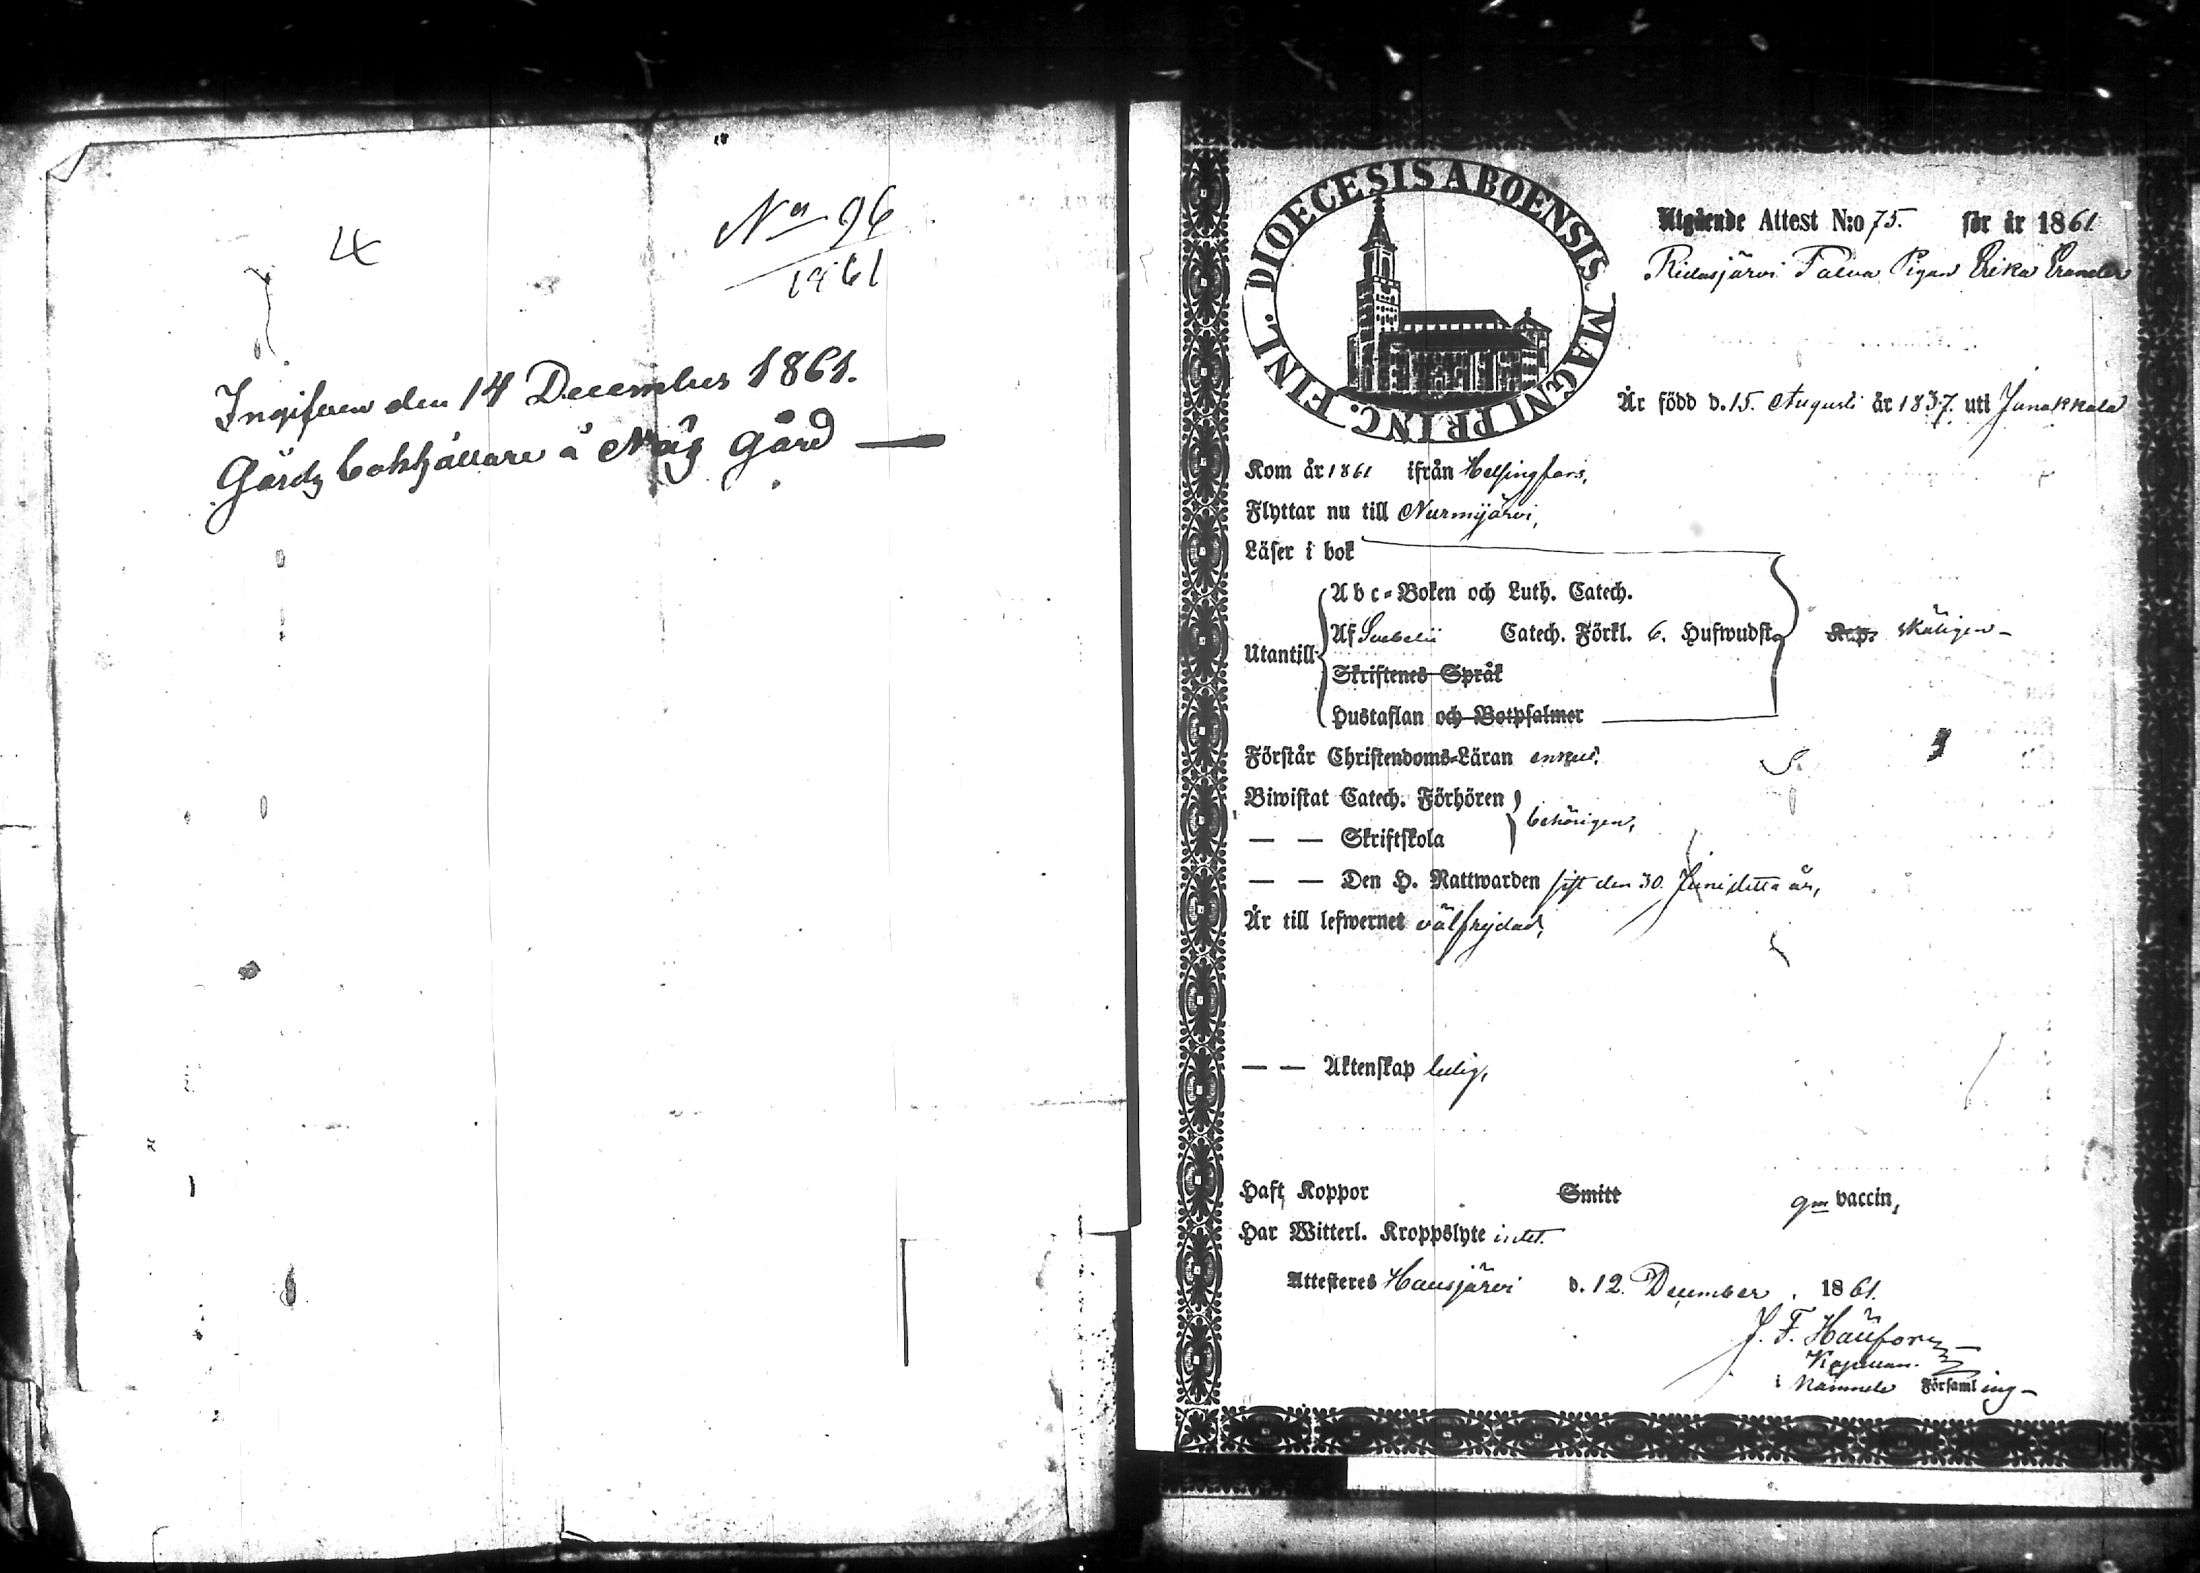 4
No 96
1861
Ingifven den 14 December 1861.
Gårds bokhållare å Näs Gård —
DIOECESIS ABOENSIS. MAGNI PRINC. FINL.
Utgående Attest N:o 75. för år 1861
Ridasjärvi Pigan Erika
Är född d. 15. Augusti år 1837. uti Janakkala
Kom år 1861 ifrån Helsingfors,
Flyttar nu till Nurmijärvi,
Läser i bok
Abc-Boken och Luth. Catech.
Af Svebelii Catech. Förkl. 6. Hufwudst. skäligen –
Utantill
Skriftenes Språk
Hustaflan och Botpsalmer
Förstår Christendoms-Läran enkelt.
Biwistat Catech. Förhören
behörigen,
— — Skriftskola
— — Den H. Nattwarden sist den 30. Juni detta år,
Är till lefwernet välfrejdad,
— — Äktenskap ledig,
Haft Koppor Smitt gm vaccin,
Har Witterl. Kroppslyte intet.
Attesteres Hausjärvi d. 12. December. 1861.
J. F.
Kapellan.
i nämnde Församling –